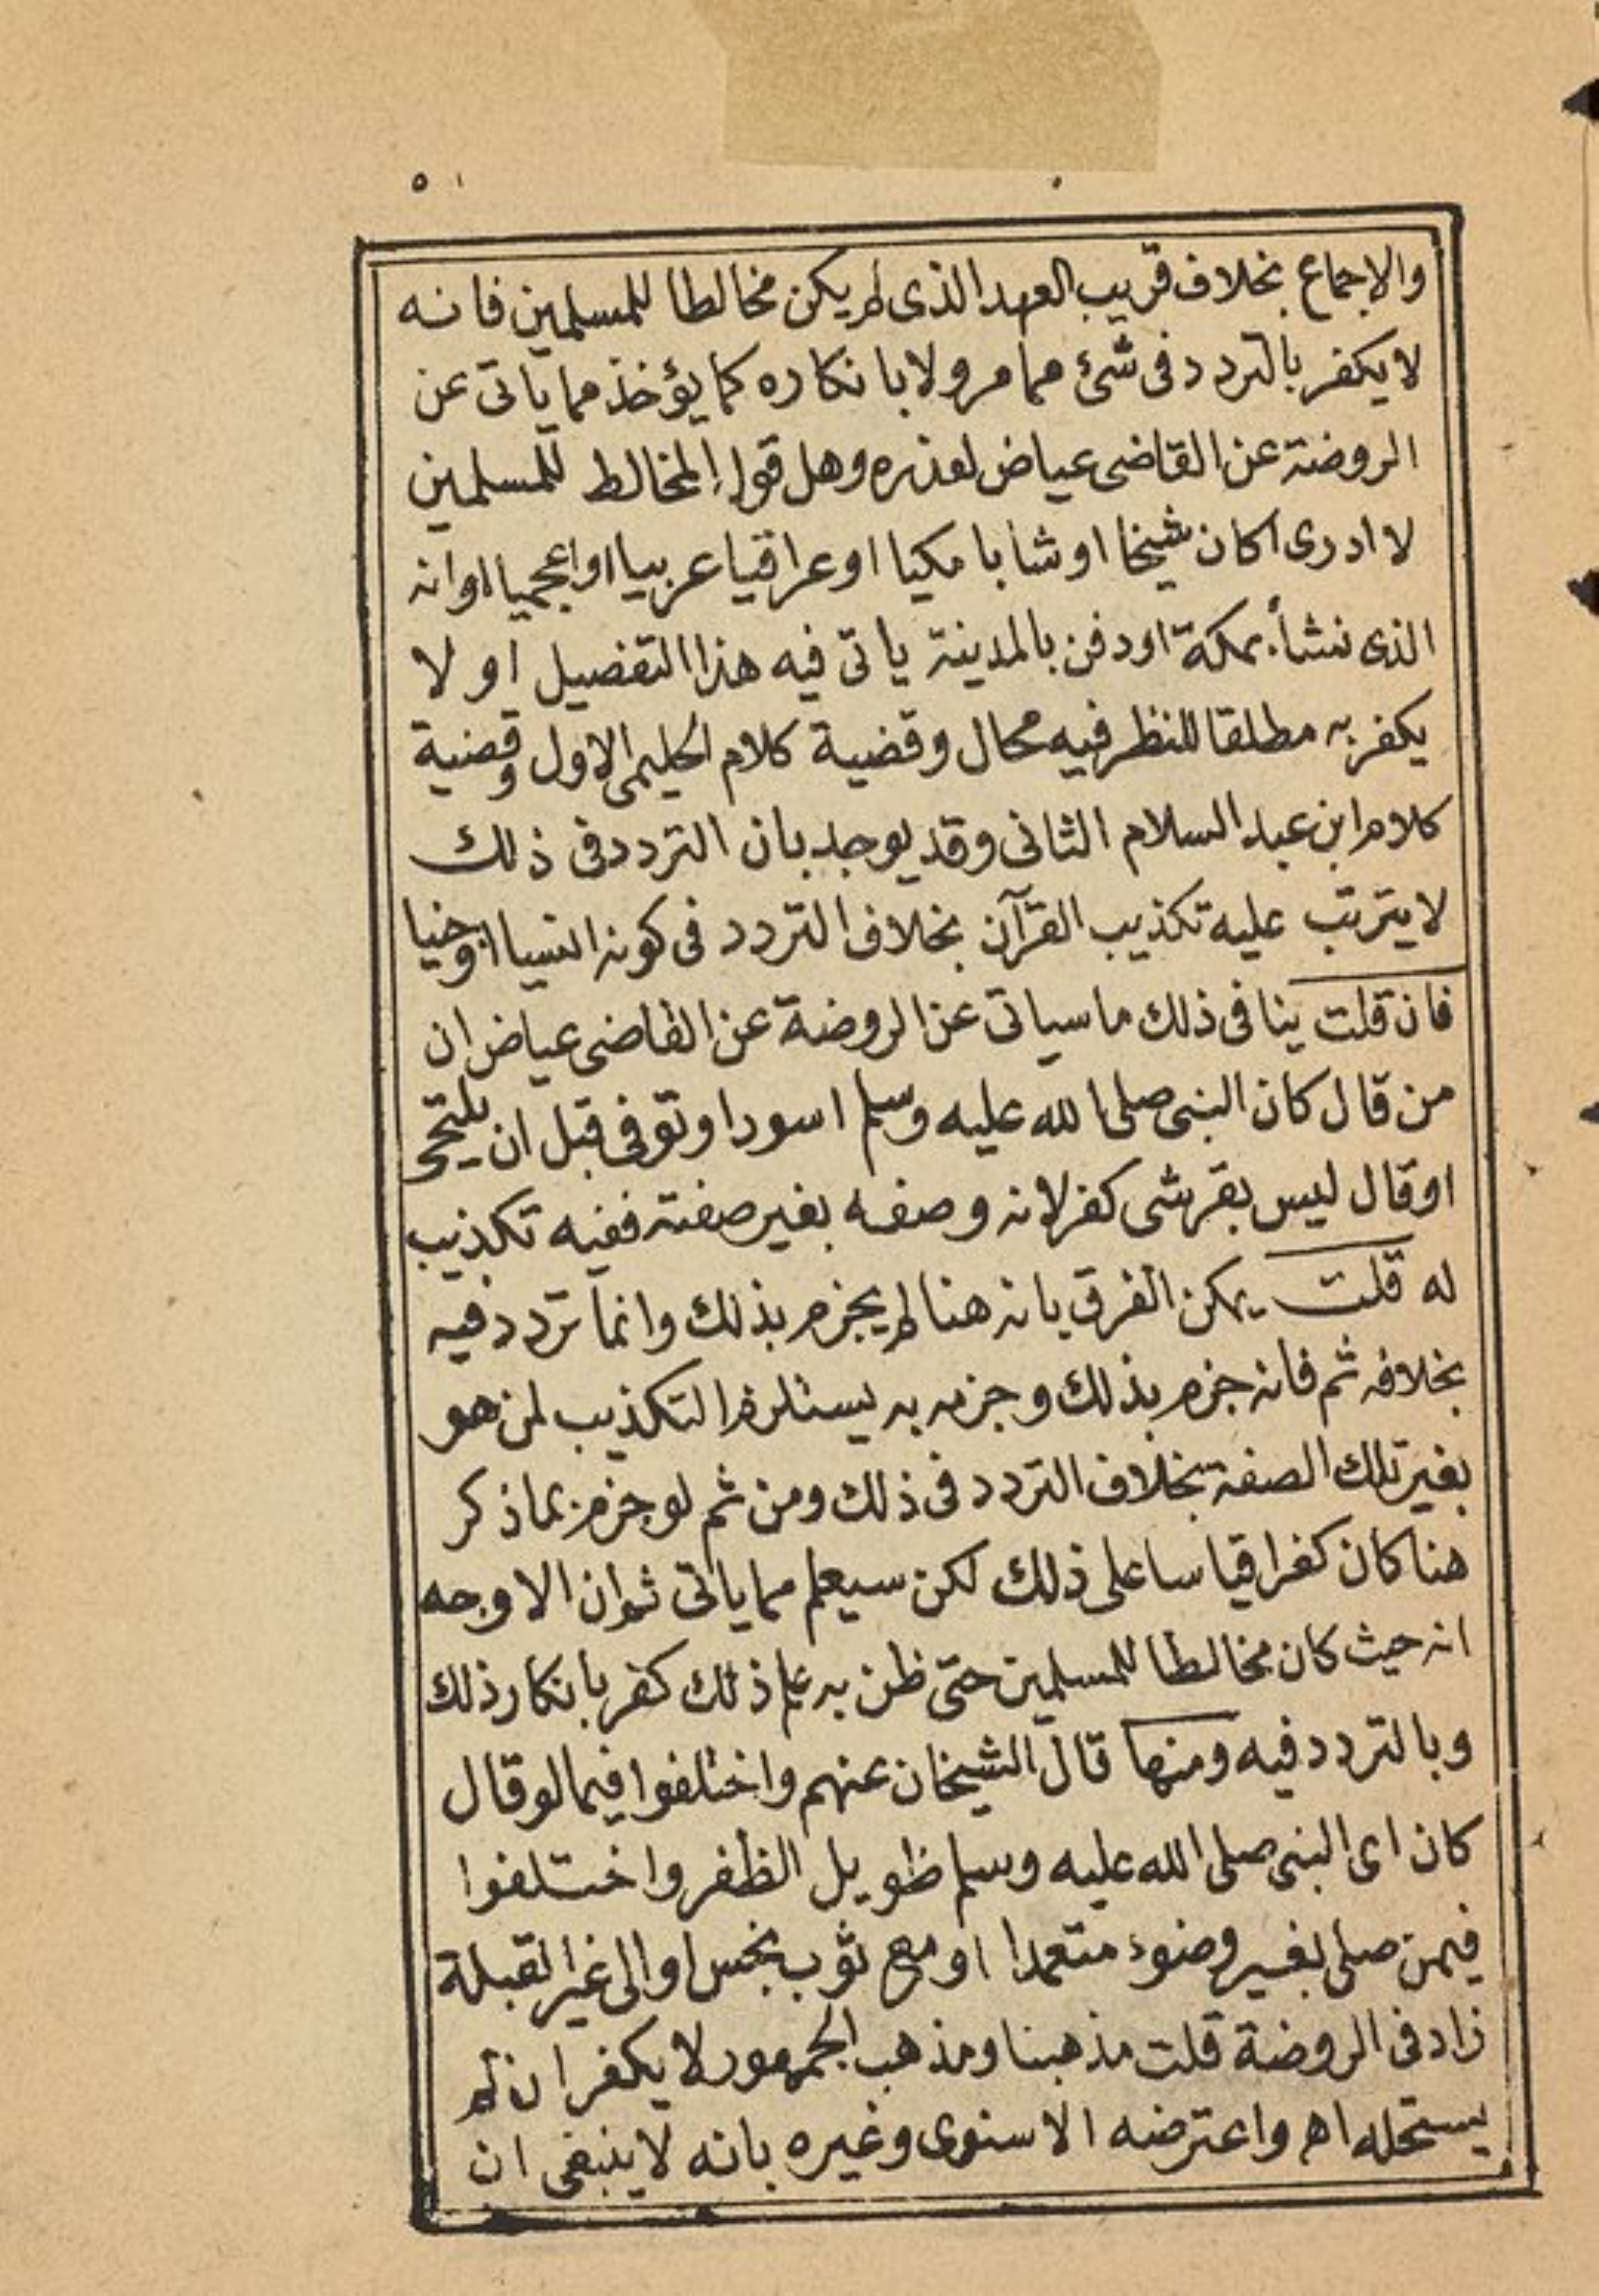 ٥٠
والاجماع بخلاف قريب العهد الذى لم يكن مخالطا للمسلمين فانه
لا يكفر بالتردد فى شئ مما مر ولا بانكاره كما يؤخذ مما ياتى عن
الروضة عن القاضى عياض لعذره وهل قول المخالط للمسلمين
لا ادرى اكان شيخا او شابا مكيا او عراقيا عربيا او اعجميا او انه
الذى نشأ بمكة او دفن بالمدينة ياتى فيه هذا التفصيل او لا
يكفر به مطلقا للنظر فيه مجال وقضية كلام الحليمى الاول وقضية
كلام ابن عبد السلام الثانى وقد يوجه بان التردد فى ذلك
لا يترتب عليه تكذيب القرآن بخلاف التردد فى كونه انسيا او جنيا
فان قلت ينافى ذلك ما سياتى عن الروضة عن القاضى عياض ان
من قال كان النبى صلى الله عليه وسلم اسود او توفى قبل ان يلتحى
او قال ليس بقرشى كفر لانه وصفه بغير صفته ففيه تكذيب
له قلت يمكن الفرق بانه هنا لم يجزم بذلك وانما تردد فيه
بخلافه ثم فانه جزم بذلك وجزمه به يستلزم التكذيب لمن هو
بغير تلك الصفة بخلاف التردد فى ذلك ومن ثم لو جزم بما ذكر
هنا كان كفرا قياسا على ذلك لكن سيعلم مما ياتى ثم ان الاوجه
انه حيث كان مخالطا للمسلمين حتى ظن به علم ذلك كفر بانكار ذلك
وبالتردد فيه ومنها قال الشيخان عنهم واختلفوا فيما لو قال
كان اى النبى صلى الله عليه وسلم طويل الظفر واختلفوا
فيمن صلى بغير وضوء متعمدا او مع ثوب نجس او الى غير القبلة
زاد فى الروضة قلت مذهبنا ومذهب الجمهور لا يكفر ان لم
يستحله اهـ واعترضه الاسنوى وغيره بانه لا ينبغى ان